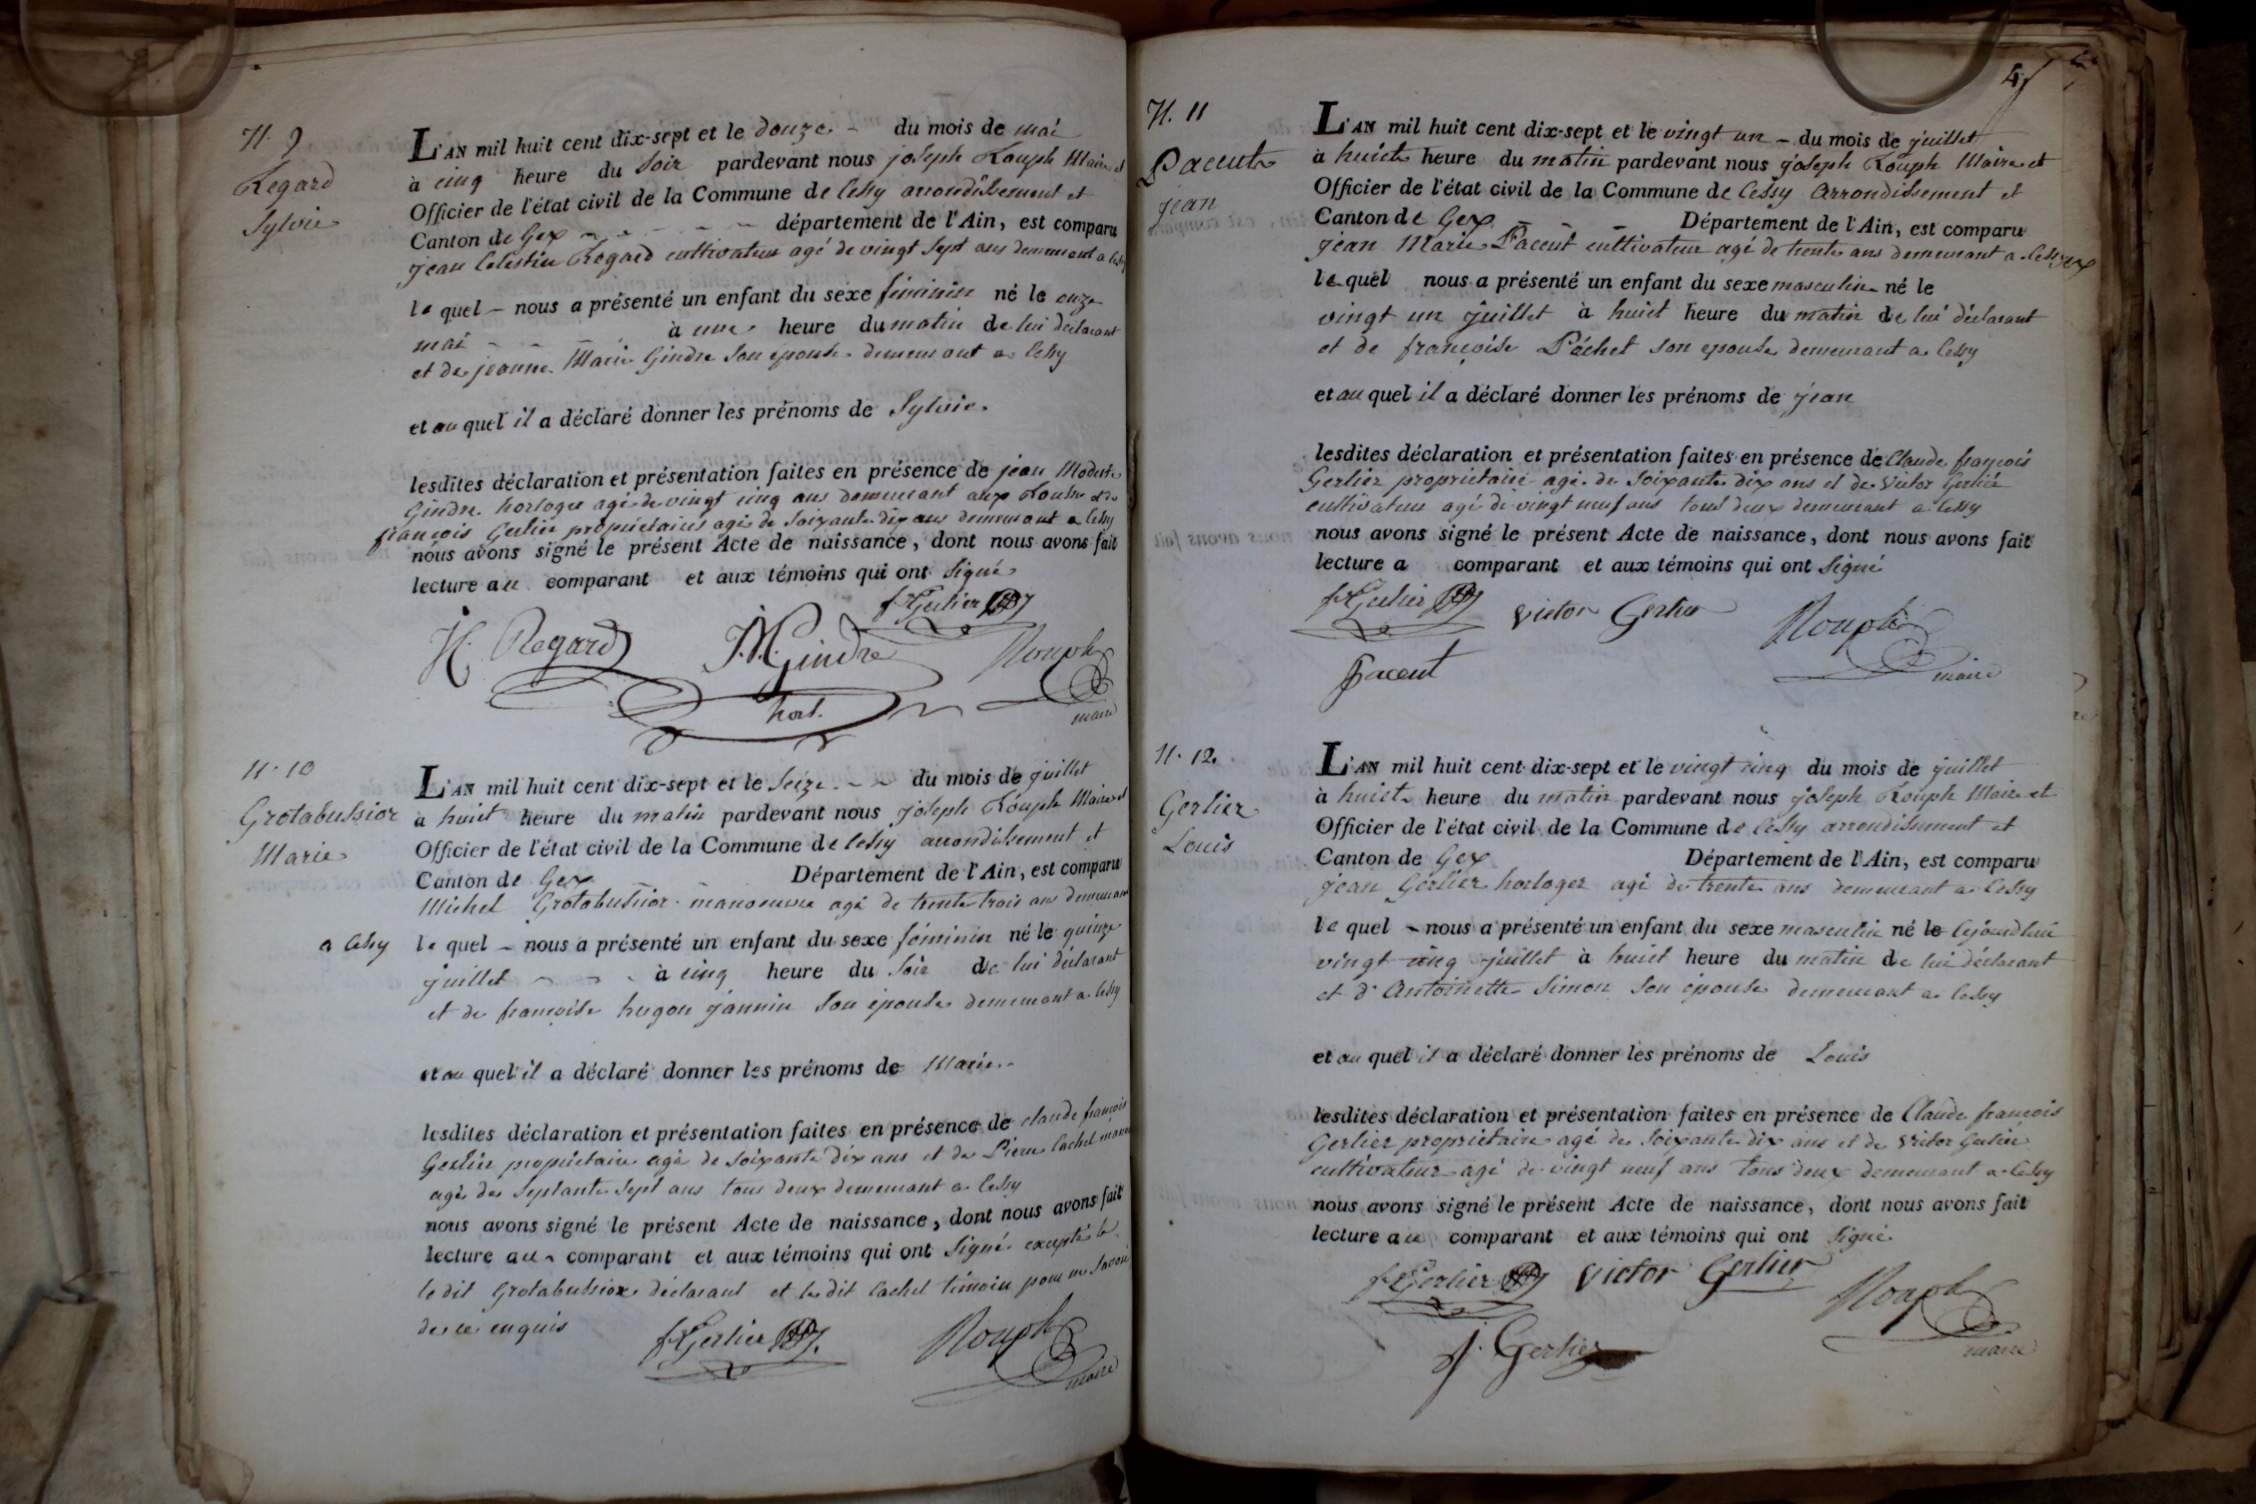 N. 9
Regard
Sylvie
L'AN mil huit cent dix-sept et le douze - du mois de mai
à cinq heure du soir pardevant nous joseph Rouph Maire et
Officier de l'état civil de la Commune de Cessy arrondissement et
Canton de Gex - - - - - département de l'Ain, est comparu
jean Celestin Regard cultivateur agé de vingt sept ans demeurant a Cessy
le quel - nous a présenté un enfant du sexe féminin né le onze
mai - - - - à une heure du matin de lui déclarant
et de jeanne Marie Gindre son epouse demeurant a Cessy
et au quel il a déclaré donner les prénoms de Sylvie.
lesdites déclaration et présentation faites en présence de jean Modeste
Gindre horloger agé de vingt cinq ans demeurant aux et de
françois Gerlier propriétaires agé de soixante dix ans demeurant a Cessy
nous avons signé le présent Acte de naissance, dont nous avons fait
lecture au comparant et aux témoins qui ont signé
f Gerlier
Regard J.M. Gindre Rouph
hort. maire
N. 10
Grotabussior
Marie
L'AN mil huit cent dix-sept et le seize - - du mois de juillet
à huict heure du matin pardevant nous joseph Rouph Maire et
Officier de l'état civil de la Commune de Cessy arrondissement et
Canton de Gex - - Département de l'Ain, est comparu
Michel Grotabussior manoeuvre agé de trente trois ans demeurant
a Cessy le quel - nous a présenté un enfant du sexe féminin né le quinze
juillet - - - à cinq heure du soir de lui déclarant
et de françoise hugon jannin son épouse demeurant a Cessy
et au quel il a déclaré donner les prénoms de Marie -
lesdites déclaration et présentation faites en présence de claude françois
Gerlier propriétaire agé de soixante dix ans et de Pierre Cachet
agé de septante sept ans tous deux demeurant a Cessy
nous avons signé le présent Acte de naissance, dont nous avons fait
lecture au comparant et aux témoins qui ont signé excepté le
le dit Grotabussior déclarant et le dit Cachet témoin pour ne savoir
de ce enquis
f Gerlier Rouph
maire
4
N. 11
Paccut
jean
L'AN mil huit cent dix-sept et le vingt un - du mois de juillet
à huict heure du matin pardevant nous joseph Rouph Maire et
Officier de l'état civil de la Commune de Cessy arrondissement et
Canton de Gex - - Département de l'Ain, est comparu
jean Marie Paccut cultivateur agé de trente ans demeurant a Cessy
le quel nous a présenté un enfant du sexe masculin né le
vingt un juillet à huict heure du matin de lui déclarant
et de françoise Pachet son epouse demeurant a Cessy
et au quel il a déclaré donner les prénoms de jean
lesdites déclaration et présentation faites en présence de Claude françois
Gerlier propriétaire agé de soixante dix ans et de Victor Gerlier
cultivateur agé de vingt neuf ans tous deux demeurant a Cessy
nous avons signé le présent Acte de naissance, dont nous avons fait
lecture a comparant et aux témoins qui ont signé
f Gerlier Victor Gerlier Rouph
Paccut maire
N. 12.
Gerlier
Louis
L'AN mil huit cent dix-sept et le vingt cinq du mois de juillet
à huict heure du matin pardevant nous joseph Rouph Maire et
Officier de l'état civil de la Commune de Cessy arrondissement et
Canton de Gex Département de l'Ain, est comparu
jean Gerlier horloger agé de trente ans demeurant a Cessy
le quel - nous a présenté un enfant du sexe masculin né le cejourdhui
vingt cinq juillet à huict heure du matin de lui déclarant
et d'Antoinette Simon son épouse demeurant a Cessy
et au quel il a déclaré donner les prénoms de Louis
lesdites déclaration et présentation faites en présence de Claude françois
Gerlier propriétaire agé de soixante dix ans et de Victor Gerlier
cultivateur agé de vingt neuf ans tous deux demeurant a Cessy
nous avons signé le présent Acte de naissance, dont nous avons fait
lecture au comparant et aux témoins qui ont signé
f Gerlier Victor Gerlier Rouph
j. Gerlier maire